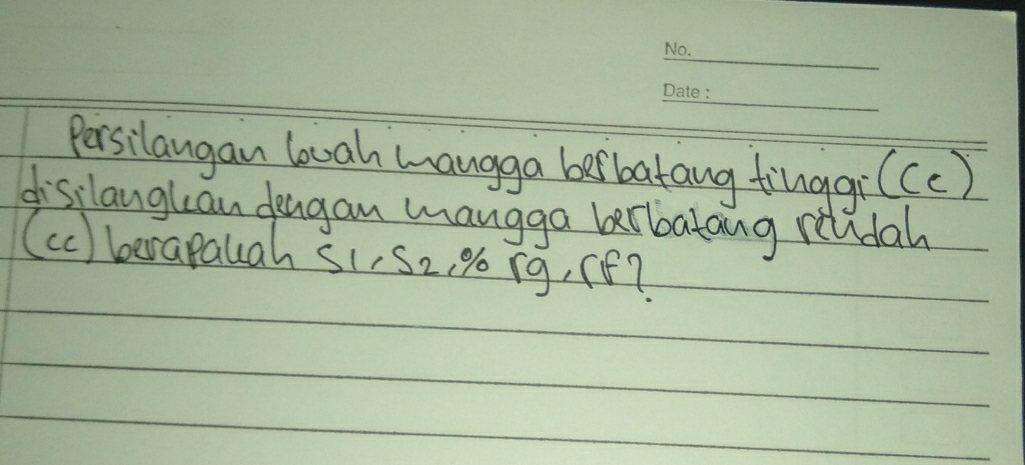 No.
Date :
Persilangan buah mangga berbatang tinggi (Cc)
disilangkan dengan mangga berbatang rendah
(cc) berapakah S1, S2, % rg, rf?